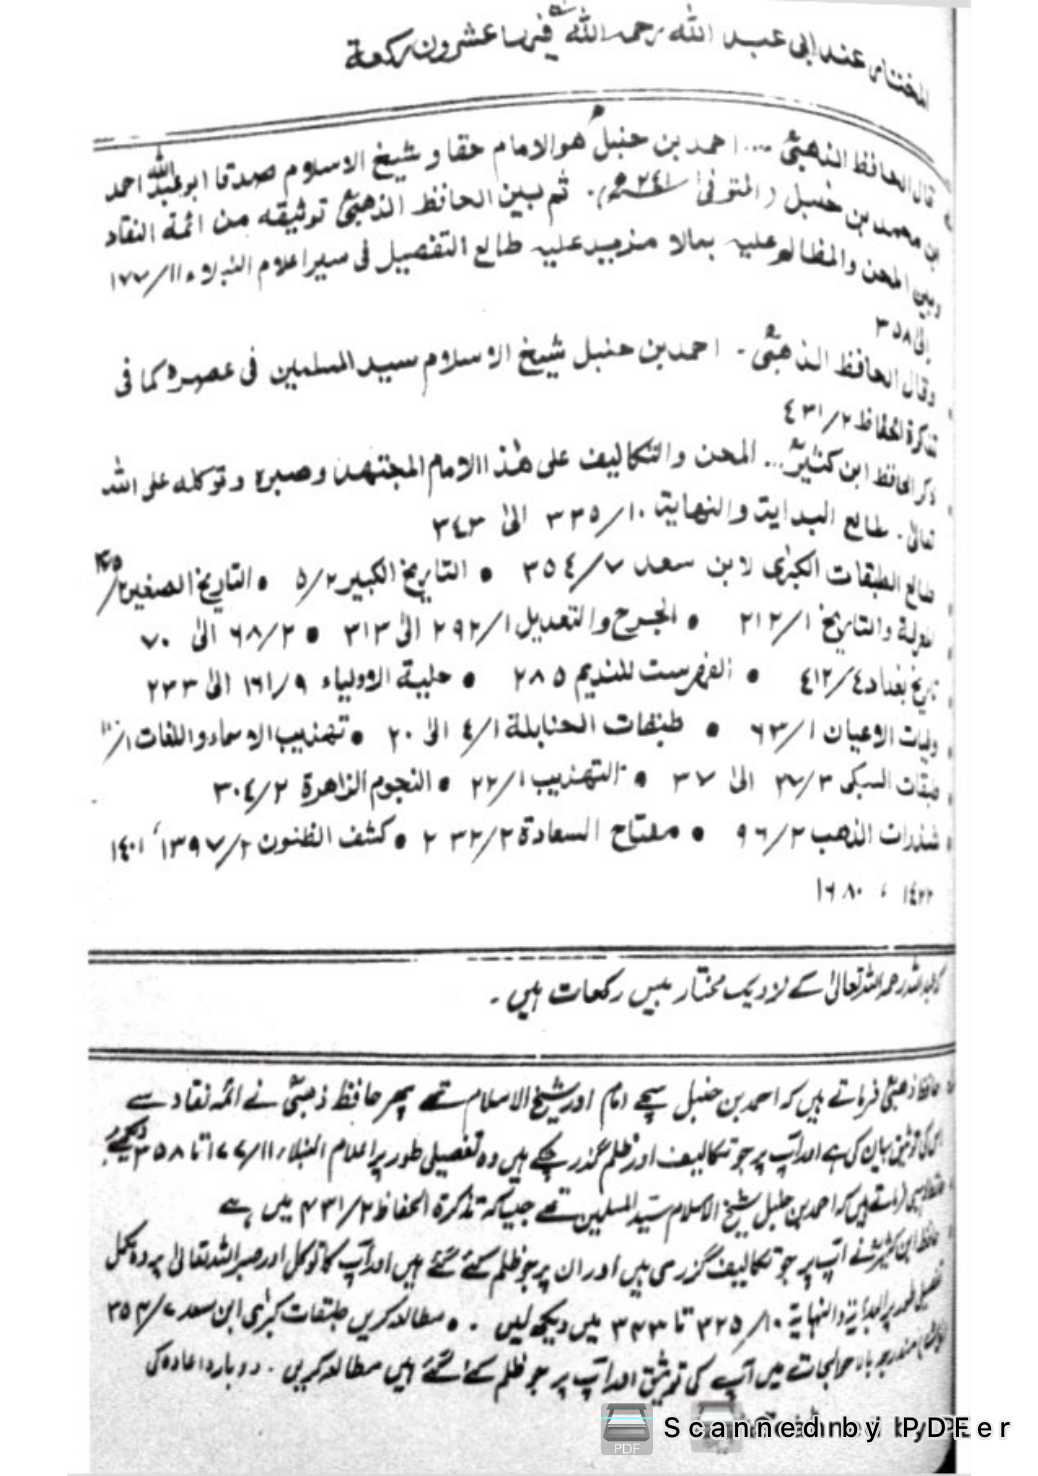 المختار عند ابی عبد اللّٰه رحمه اللّٰه فیها عشرون رکعة
قال الحافظ الذهبیؒ ... احمد بن حنبلؒ هو الامام حقا و شیخ الاسلام صدقا ابو عبد اللّٰه احمد
بن محمد بن حنبل (المتوفیٰ ٢٤١ھ). ثم بین الحافظ الذهبیؒ توثیقه من ائمة النقاد
وبین المحن والمظالم علیه بمالا مزید علیه طالع التفصیل فی سیر اعلام النبلاء ١١/١٧٧
الیٰ ٣٥٨
وقال الحافظ الذهبیؒ - احمد بن حنبل شیخ الاسلام سید المسلمین فی عصره کما فی
تذکرة الحفاظ ٢/٤٣١
ذکر الحافظ ابن کثیرؒ ... المحن والتکالیف علی هٰذا الامام المجتهد وصبره وتوکله علی اللّٰه
تعالیٰ. طالع البدایة والنهایة ١٠/٣٣٥ الیٰ ٣٤٣
طالع الطبقات الکبریٰ لابن سعد ٧/٣٥٤ • التاریخ الکبیر ٢/٥ • التاریخ الصغیر ٢/
المعرفة والتاریخ ١/٢١٢ • الجرح والتعدیل ١/٢٩٢ الیٰ ٣١٣ • ٢/٦٨ الیٰ ٧٠
تاریخ بغداد ٤/٤١٢ • الفهرست للندیم ٢٨٥ • حلیة الاولیاء ٩/١٦١ الیٰ ٢٣٣
وفیات الاعیان ١/٦٣ • طبقات الحنابلة ١/٤ الیٰ ٢٠ • تهذیب الاسماء واللغات ١/
طبقات السبکی ٢٧/٣ الیٰ ٣٧ • التهذیب ١/٢٢ • النجوم الزاهرة ٢/٣٠٤
شذرات الذهب ٢/٩٦ • مفتاح السعادة ٢/٢٣٢ • کشف الظنون ٢/١٣٩٧، ١٤٠١
١٤٢٢ ، ١٦٨٠
رحمہ اللہ تعالیٰ کے نزدیک مختار بیس رکعات ہیں۔
حافظ ذهبیؒ فرماتے ہیں کہ احمد بن حنبل سچے امام اور شیخ الاسلام تھے پھر حافظ ذهبیؒ نے ائمہ نقاد سے
ان کی توثیق بیان کی ہے اور آپ پر جو تکالیف اور ظلم گذر چکے ہیں وہ تفصیلی طور پر اعلام النبلاء ١١/١٧٧ تا ٣٥٨ دیکھیئے
ہیں کہ احمد بن حنبل شیخ الاسلام سیّد المسلمین تھے جیسا کہ تذکرة الحفاظ ٢/٤٣١ میں ہے
حافظ ابن کثیرؒ نے آپ پر جو تکالیف گزری ہیں اور ان پر جو ظلم کئے گئے ہیں اور آپ کا توکل اور صبر اللہ تعالیٰ پر وہ مکمل
تفصیلی طور پر البدایة والنهایة ١٠/٣٢٥ تا ٣٤٣ میں دیکھ لیں . • مطالعہ کریں طبقات کبریٰ ابن سعد ٧/٣٥٤
مندرجہ بالا حوالجات میں آپ کی توثیق اور آپ پر جو ظلم کئے گئے ہیں مطالعہ کریں۔ دوبارہ اعادہ کی
Scanned by PDFer